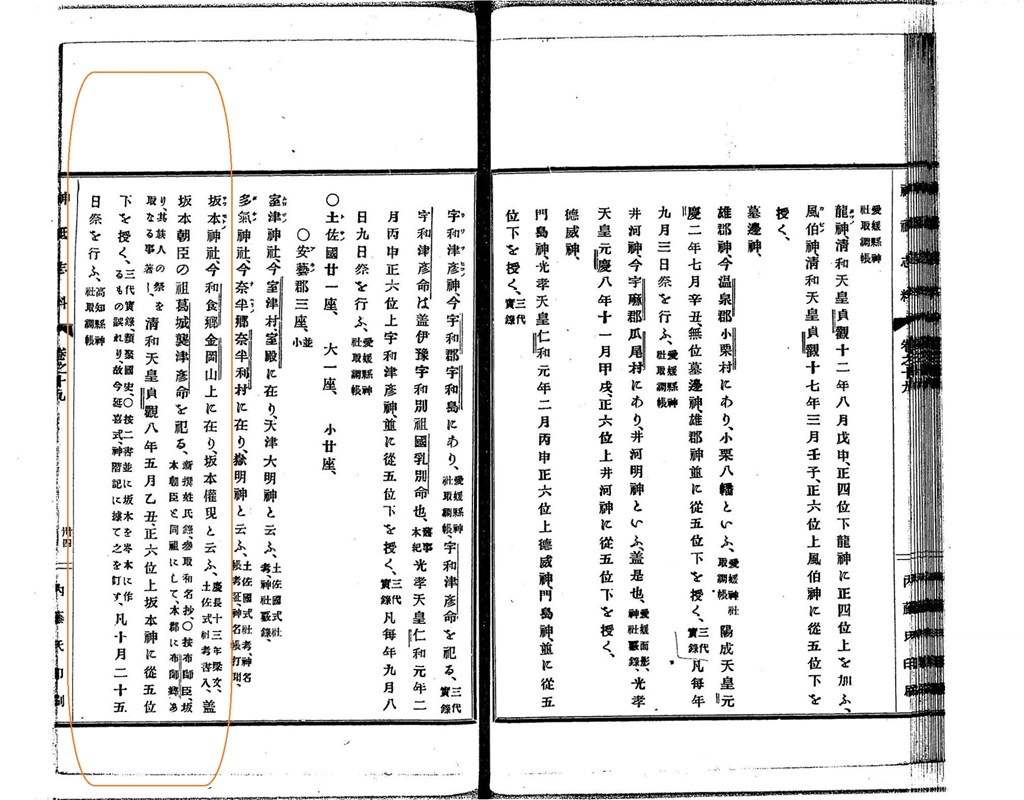 愛媛縣神
社取調帳
龍神、清和天皇貞觀十二年八月戊申、正四位下龍神に正四位上を加ふ、
風伯神、清和天皇貞觀十七年三月壬子、正六位上風伯神に從五位下を
授く、
墓邊神、
雄郡神、今温泉郡小栗村にあり、小栗八幡といふ、愛媛神社取調帳 陽成天皇元
慶二年七月辛丑、無位墓邊神、雄郡神並に從五位下を授く、三代實錄 凡每年
九月三日祭を行ふ、愛媛縣神社取調帳
井河神、今宇麻郡瓜尾村にあり、井河明神といふ、盖是也、愛媛面影、神社覈錄、光孝
天皇元慶八年十一月甲戌、正六位上井河神に從五位下を授く、
德威神、
門島神、光孝天皇仁和元年二月丙申正六位上德威神、門島神、並に從五
位下を授く、三代實錄
宇和津彦神、今宇和郡宇和島にあり、愛媛縣神社取調帳、宇和津彦命を祀る、三代實錄
宇和津彦命は盖伊豫宇和別祖國乳別命也、舊事本紀 光孝天皇仁和元年二
月丙申正六位上宇和津彦神、並に從五位下を授く、三代實錄 凡每年九月八
日九日祭を行ふ、愛媛縣神社取調帳
〇土佐國廿一座、 大一座、 小廿座、
〇安藝郡三座、並小
室津神社、今室津村室殿に在り、天津大明神と云ふ、土佐國式社考、神社覈錄、
多氣神社、今奈半鄕奈半利村に在り、嶽明神と云ふ、土佐國式社考、神名帳考證、神名帳打聞、
坂本神社、今和食鄕金岡山上に在り、坂本權現と云ふ、慶長十三年梁文、土佐式社考書入、盖
坂本朝臣の祖葛城襲津彦命を祀る、新撰姓氏錄、參取和名抄、〇按布師臣、坂本朝臣と同祖にして、本郡に布師鄕あ
り其族人の祭を取なる事著し、淸和天皇貞觀八年五月乙丑、正六位上坂本神に從五位
下を授く、三代實錄、類聚國史、〇按二書並に坂本を岑本に作るもの誤れり故今延喜式、神階記に據て之を訂す、凡十月二十五
日祭を行ふ、高知縣神社取調帳
神祇志料 卷之十九 卅四 內藤氏印刷